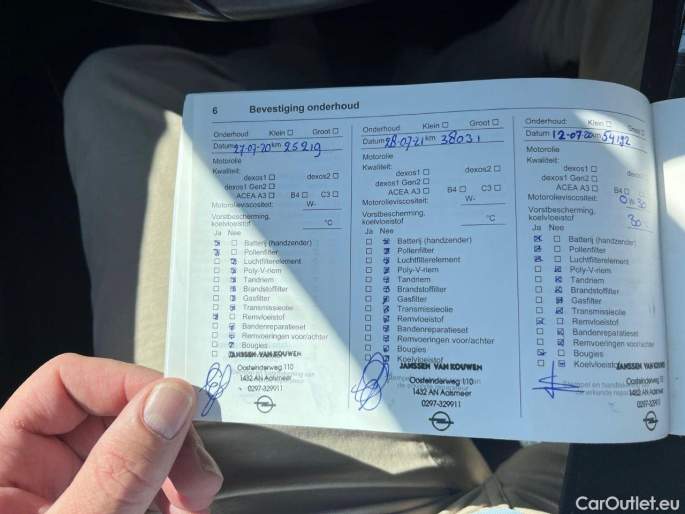 6 Bevestiging onderhoud
Onderhoud: Klein ☐ Groot ☐
Datum 27-07-20 km 25219
Motorolie
Kwaliteit:
dexos1 ☐ dexos2 ☐
dexos1 Gen2 ☐
ACEA A3 ☐ B4 ☐ C3 ☐
Motorolieviscositeit: W-
Vorstbescherming,
koelvloeistof °C
Ja Nee
Batterij (handzender)
Pollenfilter
Luchtfilterelement
Poly-V-riem
Tandriem
Brandstoffilter
Gasfilter
Transmissieolie
Remvloeistof
Bandenreparatieset
Remvoeringen voor/achter
Bougies
JANSSEN VAN KOUWEN
Oosteinderweg 110
1432 AN Aalsmeer
0297-329911
Onderhoud: Klein ☐ Groot ☐
Datum 28-07-21 km 38031
Motorolie
Kwaliteit:
dexos1 ☐ dexos2 ☐
dexos1 Gen2 ☐
ACEA A3 ☐ B4 ☐ C3 ☐
Motorolieviscositeit: W-
Vorstbescherming,
koelvloeistof °C
Ja Nee
Batterij (handzender)
Pollenfilter
Luchtfilterelement
Poly-V-riem
Tandriem
Brandstoffilter
Gasfilter
Transmissieolie
Remvloeistof
Bandenreparatieset
Remvoeringen voor/achter
Bougies
Koelvloeistof
JANSSEN VAN KOUWEN
Oosteinderweg 110
1432 AN Aalsmeer
0297-329911
Onderhoud: Klein ☐ Groot ☐
Datum 12-07-20 km 54192
Motorolie
Kwaliteit:
dexos1 ☐ dexos2 ☐
dexos1 Gen2 ☐
ACEA A3 ☐ B4 ☐
Motorolieviscositeit: 0 W- 30
Vorstbescherming,
koelvloeistof 30
Ja Nee
Batterij (handzender)
Pollenfilter
Luchtfilterelement
Poly-V-riem
Tandriem
Brandstoffilter
Gasfilter
Transmissieolie
Remvloeistof
Bandenreparatieset
Remvoeringen voor/achter
Bougies
Koelvloeistof
JANSSEN VAN KOUWEN
Oosteinderweg 110
1432 AN Aalsmeer
0297-329911
CarOutlet.eu